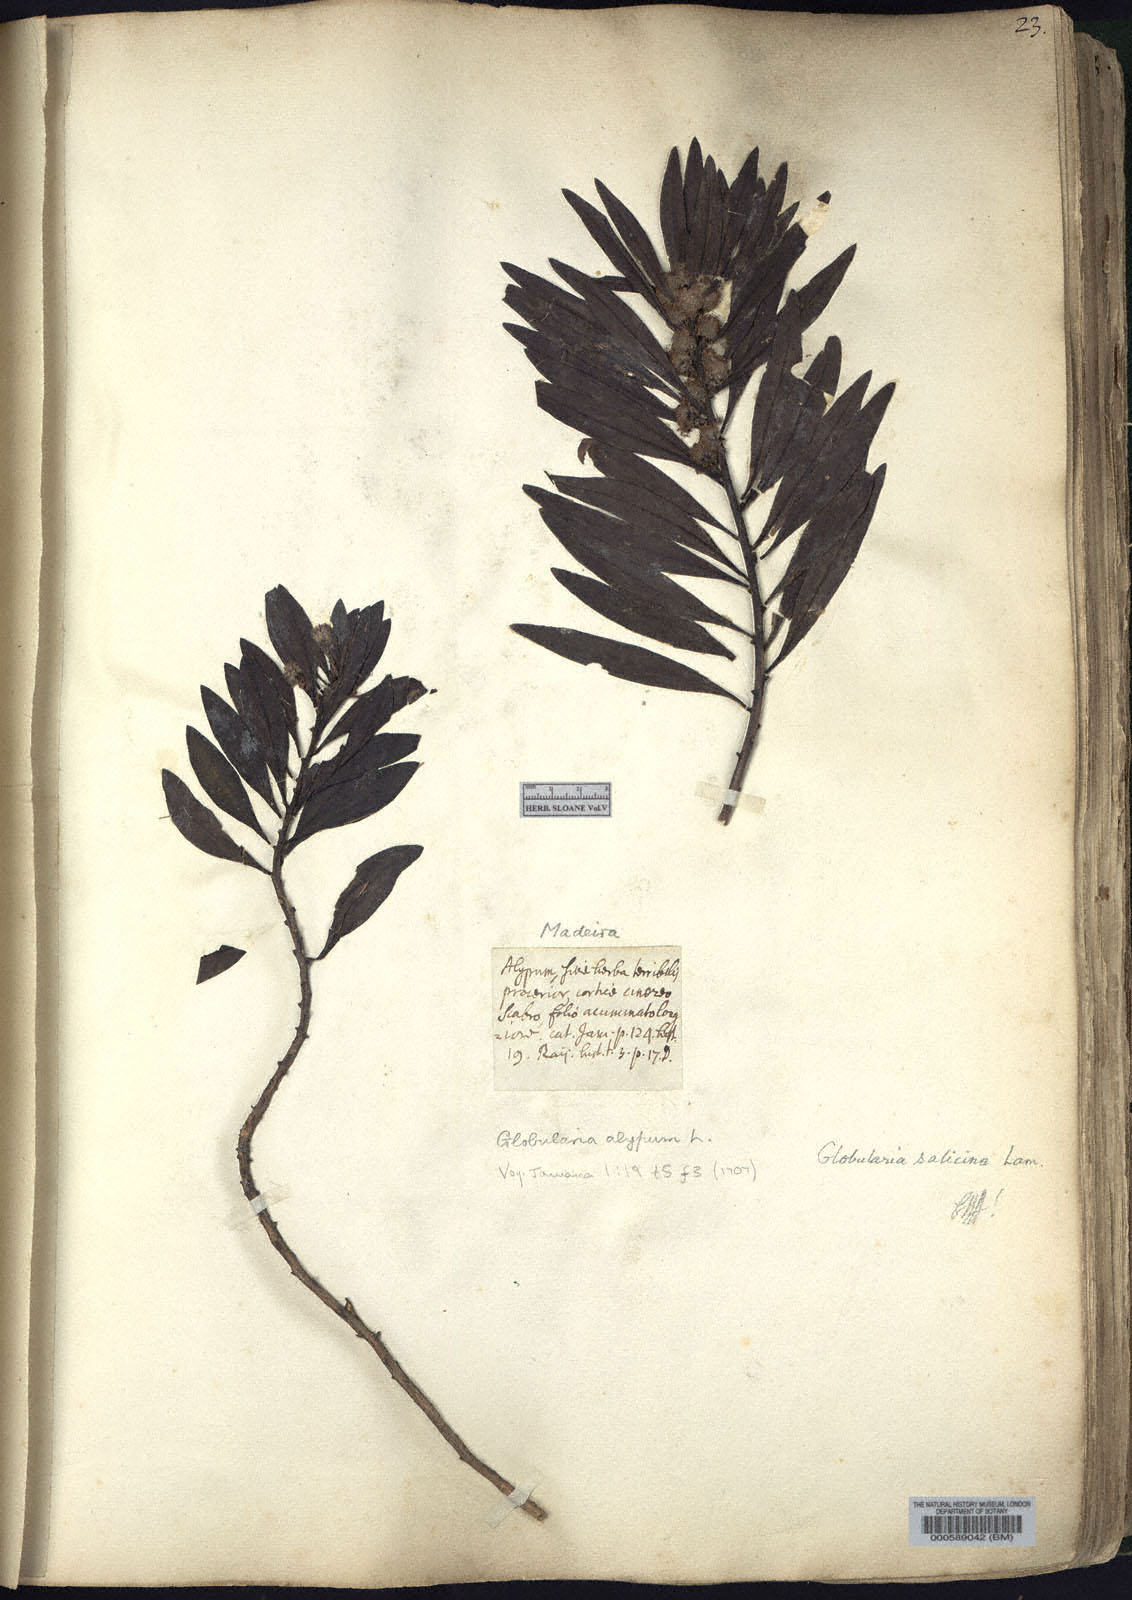 23.
HERB. SLOANE Vol.V
Madeira
Alypum, sive herba terribilis
procerior, cortice cinereo
scabro, folio acuminato long
=iore. cat. Jam. p. 124. hist.
19. Raij. hist. t. 3. p. 17.
Globularia alypum L.
Voy. Jamaica 1:19 t5 f3 (1707)
Globularia salicina Lam.
THE NATURAL HISTORY MUSEUM, LONDON
DEPARTMENT OF BOTANY
000589042 (BM)